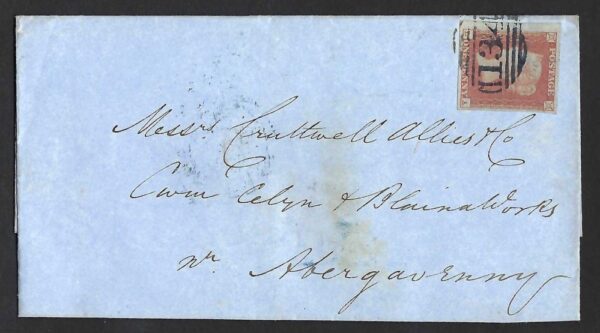 POSTAGE
ONE PENNY
134
Messrs. Cruttwell Allies & Co
Cwm Celyn & Blaina Works
nr Abergavenny